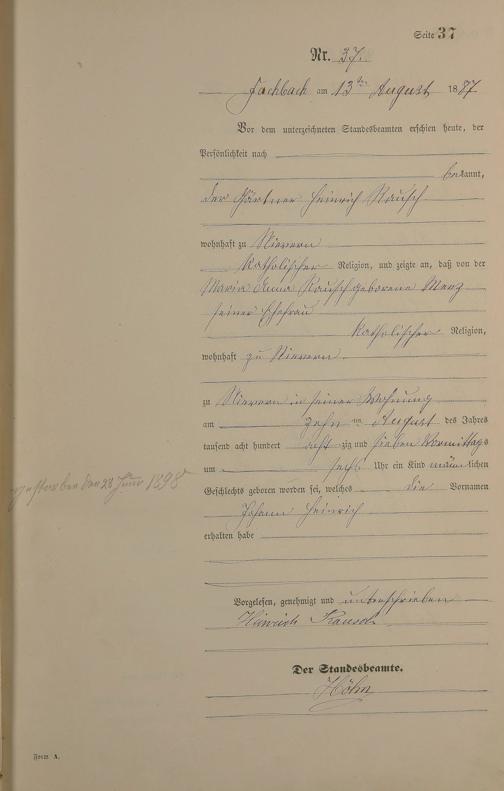 Seite 37
Nr. 37.
Fachbach am 13ten August 1887
Vor dem unterzeichneten Standesbeamten erschien heute, der
Persönlichkeit nach
bekannt,
der Gärtner Heinrich Rausch
wohnhaft zu Nievern
katholischer Religion, und zeigte an, daß von der
Maria Anna Rausch geborene Menz
seiner Ehefrau
katholischer Religion,
wohnhaft zu Nievern
zu Nievern in seiner Wohnung
am zehn ten August des Jahres
tausend acht hundert acht zig und sieben Vormittags
um sechs Uhr ein Kind männlichen
Geschlechts geboren worden sei, welches die Vornamen
Johann Heinrich
erhalten habe
gestorben den 28 1898
Vorgelesen, genehmigt und unterschrieben
Heinrich Rausch
Der Standesbeamte.
Höhn
Form A.